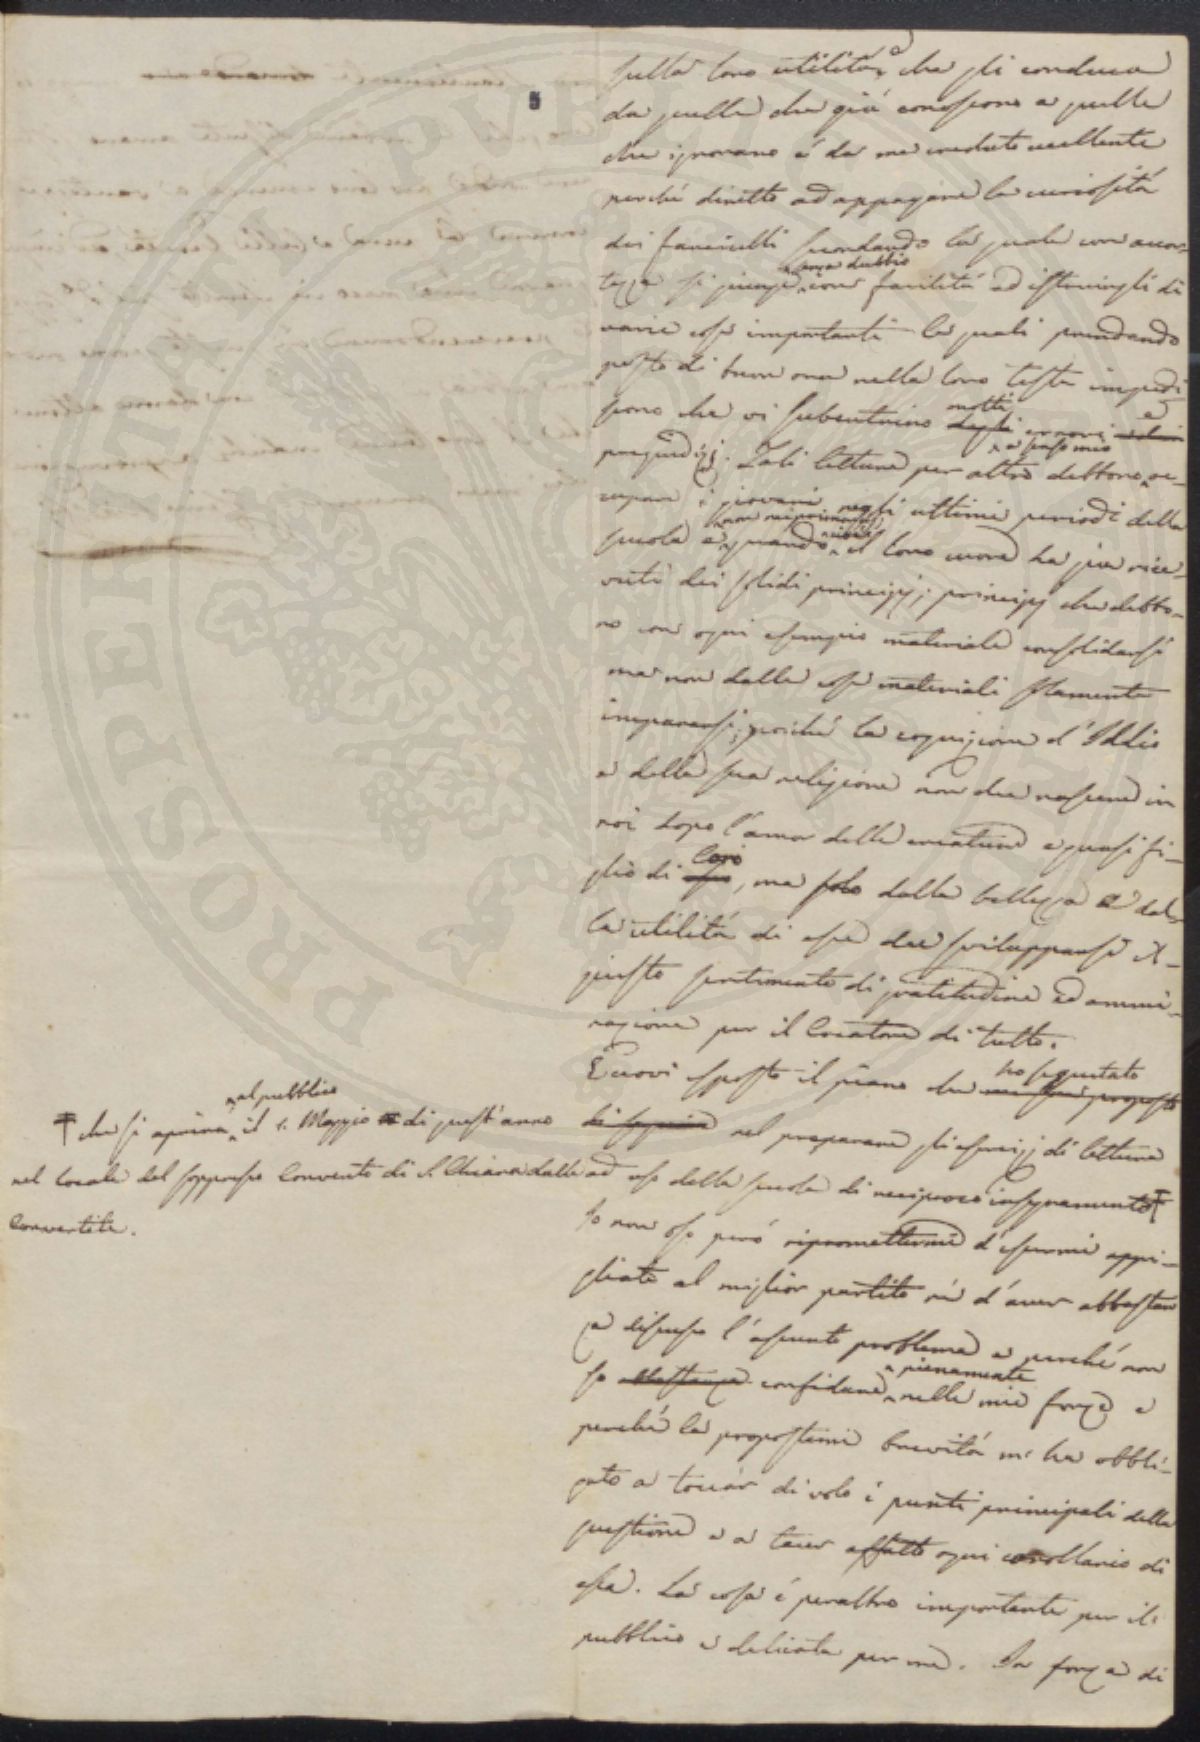 sulla loro utilità, che gli conduca
da quelle che già conoscono a quelle
che ignorano è da me creduto eccellente
perché diretto ad appagare la curiosità
dei fanciulli secondando la quale con accor-
tezza si giunge senza dubbio con facilità ad istruirgli di
varie cose importanti le quali prendendo
posto di buon ora nella loro testa impedi
scono che vi subentrino molti errori e
pregiudizj. Tali letture per altro debbono a senso mio oc-
cupare i giovani negli ultimi periodi della
scuola e quando il loro cuore ha già rice-
vuti dei solidi principj; principj che debbo-
no con ogni esempio materiale consolidarsi
ma non dalle cose materiali solamente
impararsi; poiché la cognizione d'Iddio
e della sua religione non dee nascere in
noi dopo l'amor delle creature e quasi fi-
glio di loro, ma solo dalla bellezza e dal-
la utilità di esse dee svilupparsi il
giusto sentimento di gratitudine ed ammi-
razione per il Creatore di tutto.
Eccovi esposto il piano che ho seguitato
nel preparare gli esercizj di lettura
ad uso della scuola di reciproco insegnamento ‡
Io non oso però ripromettermi d'essermi appi-
gliato al miglior partito né d'aver abbastan
za discusso l'assunto problema e perché non
so abbastanza confidare pienamente nelle mie forze e
perché la propostami brevità m'ha obbli-
gato a toccar di volo i punti principali della
questione e a tacer affatto ogni corollario di
essa. La cosa è peraltro importante per il
pubblico e delicata per me. In forza di
‡ che si aprirà al pubblico il 1. Maggio di quest'anno
nel locale del soppresso Convento di S. Chiara dalle
Convertite.
5
PROSPERITATI PVBLICAE